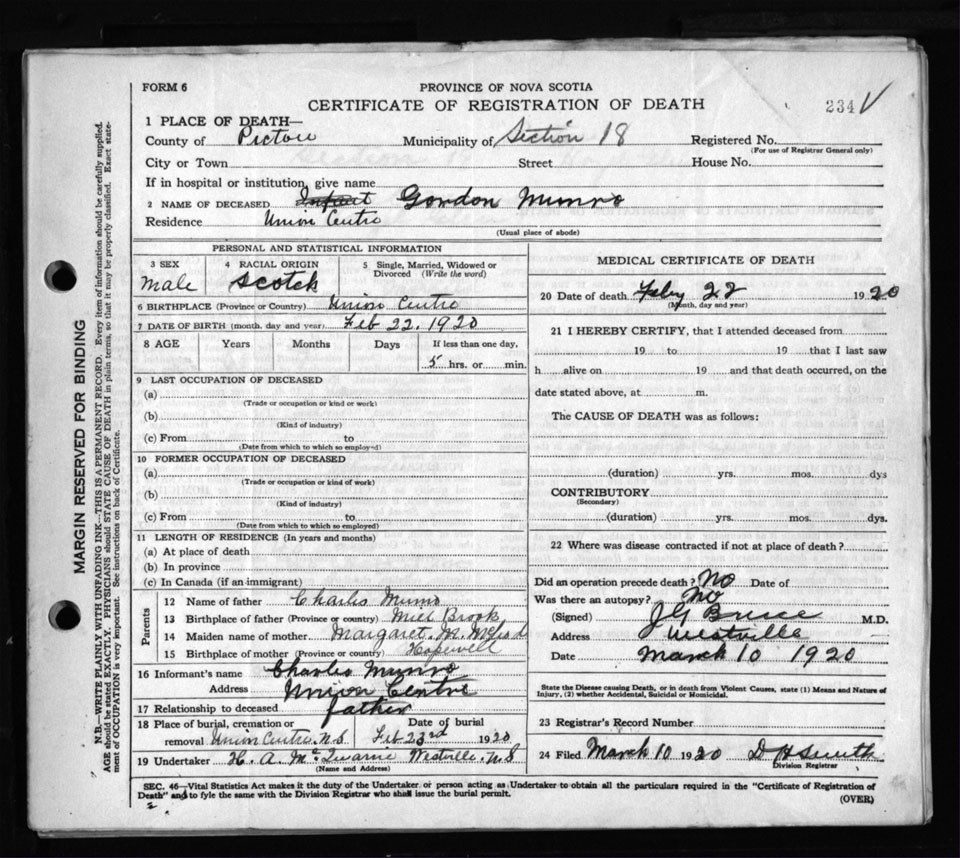 FORM 6
PROVINCE OF NOVA SCOTIA
CERTIFICATE OF REGISTRATION OF DEATH
234 V
1 PLACE OF DEATH—
County of Pictou Municipality of Section 18 Registered No.
(For use of Registrar General only)
City or Town Street House No.
If in hospital or institution, give name
2 NAME OF DECEASED Infant Gordon Munro
Residence Union Centre
(Usual place of abode)
PERSONAL AND STATISTICAL INFORMATION
3 SEX 4 RACIAL ORIGIN 5 Single, Married, Widowed or
Divorced (Write the word)
male Scotch
6 BIRTHPLACE (Province or Country) Union Centre
7 DATE OF BIRTH (month, day and year) Feb 22. 1920
8 AGE Years Months Days If less than one day,
5 hrs. or min.
9 LAST OCCUPATION OF DECEASED
(a)
(Trade or occupation or kind or work)
(b)
(Kind of industry)
(c) From to
(Date from which to which so employed)
10 FORMER OCCUPATION OF DECEASED
(a)
(Trade or occupation or kind of work)
(b)
(Kind of industry)
(c) From to
(Date from which to which so employed)
11 LENGTH OF RESIDENCE (In years and months)
(a) At place of death
(b) In province
(c) In Canada (if an immigrant)
Parents
12 Name of father Charles Munro
13 Birthplace of father (Province or country) Mill Brook
14 Maiden name of mother Margaret. M.
15 Birthplace of mother (Province or country) Hopewell
16 Informant's name Charles Munro
Address Union Centre
17 Relationship to deceased father
18 Place of burial, cremation or Date of burial
removal Union Centre. N.S Feb 23rd 1920
19 Undertaker H. A. Westville. N.S
(Name and Address)
MEDICAL CERTIFICATE OF DEATH
20 Date of death Feby 22 1920
(Month, day and year)
21 I HEREBY CERTIFY, that I attended deceased from
19 to 19 that I last saw
h alive on 19 and that death occurred, on the
date stated above, at m.
The CAUSE OF DEATH was as follows:
(duration) yrs. mos. dys
CONTRIBUTORY
(Secondary)
(duration) yrs. mos. dys.
22 Where was disease contracted if not at place of death?
Did an operation precede death? No Date of
Was there an autopsy? No
(Signed) J G Bruce M.D.
Address Westville
Date March 10 1920
State the Disease causing Death, or in death from Violent Causes, state (1) Means and Nature of
Injury, (2) whether Accidental, Suicidal or Homicidal.
23 Registrar's Record Number
24 Filed March 10 1920 D H Smith
Division Registrar
SEC. 46—Vital Statistics Act makes it the duty of the Undertaker or person acting as Undertaker to obtain all the particulars required in the "Certificate of Registration of
Death" and to fyle the same with the Division Registrar who shall issue the burial permit.
(OVER)
MARGIN RESERVED FOR BINDING
N.B.—WRITE PLAINLY WITH UNFADING INK—THIS IS A PERMANENT RECORD. Every item of information should be carefully supplied.
AGE should be stated EXACTLY. PHYSICIANS should STATE CAUSE OF DEATH in plain terms, so that it may be properly classified. Exact state-
ment of OCCUPATION is very important. See instructions on back of Certificate.